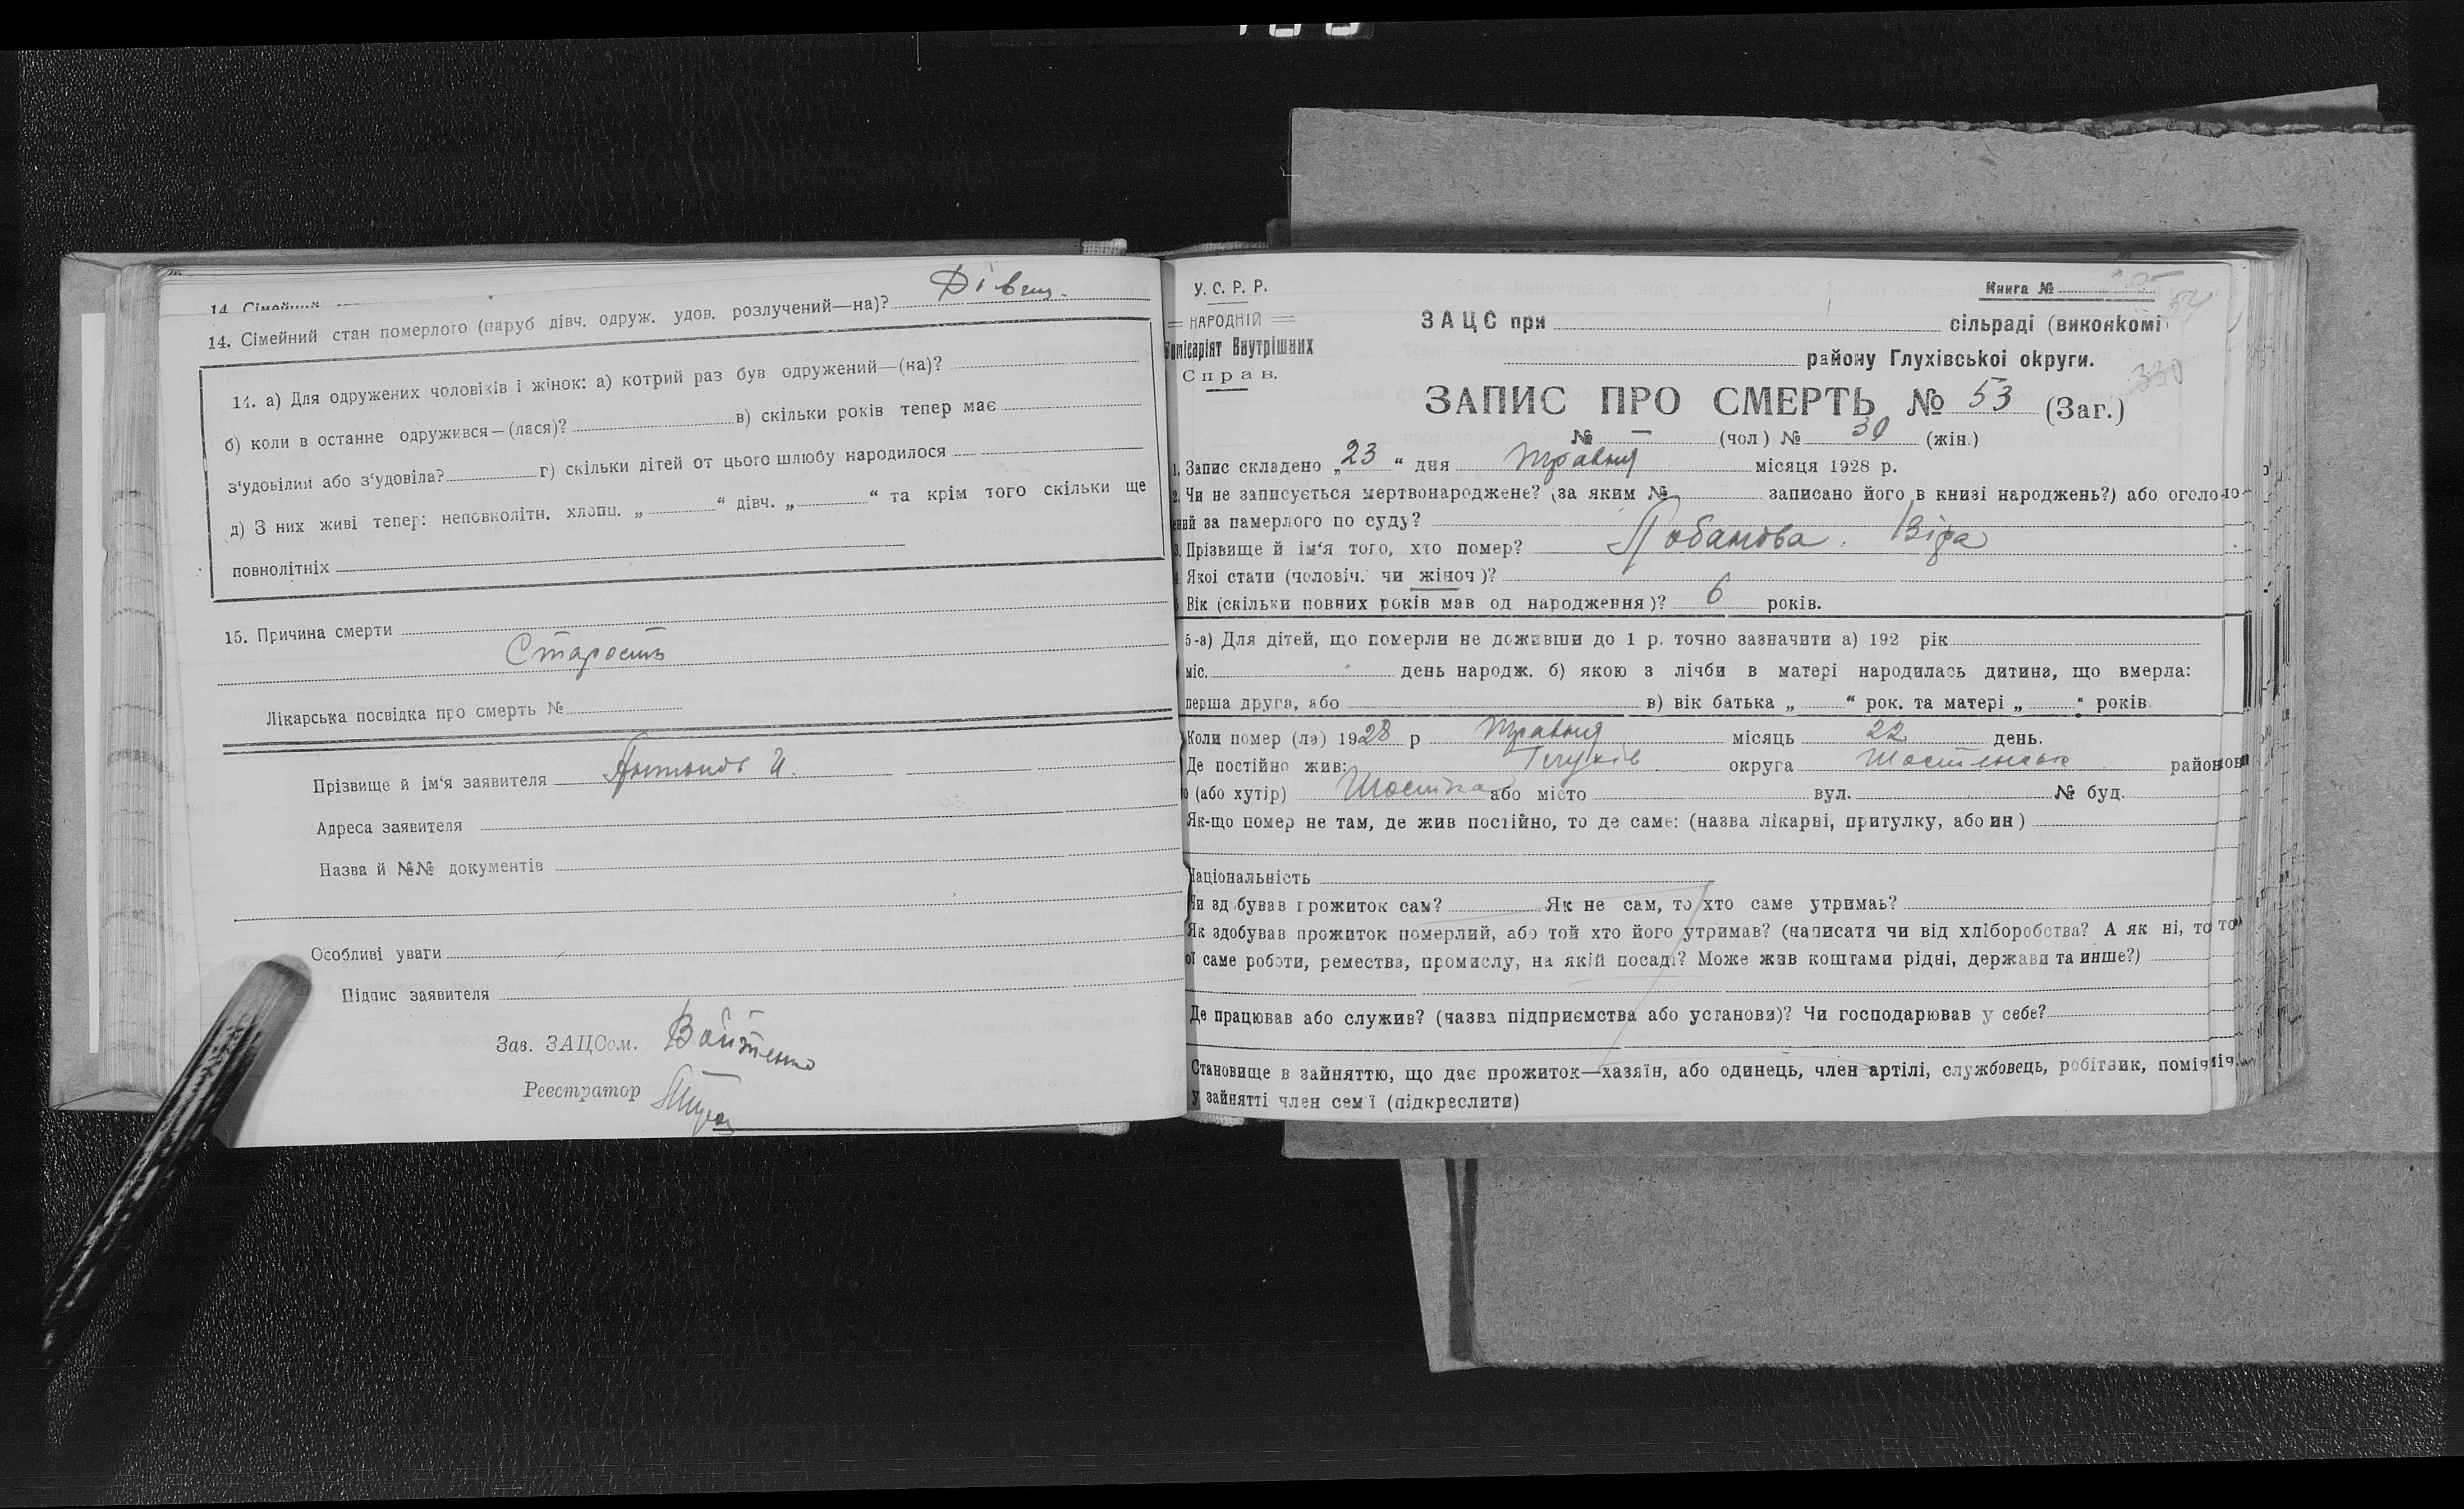 14. Сімейний
14. Сімейний стан померлого (паруб дівч. одруж. удов. розлучений—на)? Дівчи.
14. а) Для одружених чоловіків і жінок: а) котрий раз був одружений—(на)?
б) коли в останне одружився—(лася)? в) скільки років тепер має
з'удовілий або з'удовіла? г) скільки дітей от цього шлюбу народилося
д) З них живі тепер: неповнолітн. хлопц. „ “ дівч. „ “ та крім того скільки ще
повнолітніх
15. Причина смерти
Старость
Лікарська посвідка про смерть №
Прізвище й ім'я заявителя Антонов И.
Адреса заявителя
Назва й №№ документів
Особливі уваги
Підпис заявителя
Зав. ЗАЦСом. Войтенко
Реєстратор
У. С. Р. Р.
НАРОДНІЙ
Комісаріят Внутрішних
Справ.
Книга №
54
330
ЗАЦС при сільраді (виконкомі
району Глухівської округи.
ЗАПИС ПРО СМЕРТЬ № 53 (Заг.)
№ — (чол) № 30 (жін.)
1. Запис складено „23“ дня травня місяця 1928 р.
2. Чи не записується мертвонароджене? (за яким № записано його в книзі народжень?) або оголо
ений за памерлого по суду?
3. Прізвище й ім'я того, хто помер? Лобанова. Віра
4 Якоі стати (чоловіч. чи жіноч)?
5 Вік (скільки повних років мав од народження)? 6 років.
5-а) Для дітей, що померли не доживши до 1 р. точно зазначити а) 192 рік
міс. день народж. б) якою з лічби в матері народилась дитина, що вмерла:
перша друга, або в) вік батька „ “ рок. та матері „ “ років.
Коли помер (ла) 1928 р травня місяць 22 день.
Де постійно жив: Глухів округа Шостенськ район
о (або хутір) Шостка або місто вул. № буд.
Як-що помер не там, де жив постійно, то де саме: (назва лікарні, притулку, або ин)
Національність
Чи здобував прожиток сам? Як не сам, то хто саме утримає?
Як здобував прожиток померлий, або той хто його утримав? (написати чи від хліборобства? А як ні, то
ої саме роботи, ремества, промислу, на якій посаді? Може жив коштами рідні, держави та инше?)
Де працював або служив? (назва підприємства або установи)? Чи господарював у себе?
Становище в зайняттю, що дає прожиток—хазяїн, або одинець, член артілі, службовець, робітник, поміч
у зайнятті член сем'ї (підкреслити)